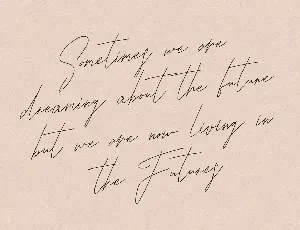 Sometimes we are
dreaming about the future
but we are now living in
the Futures